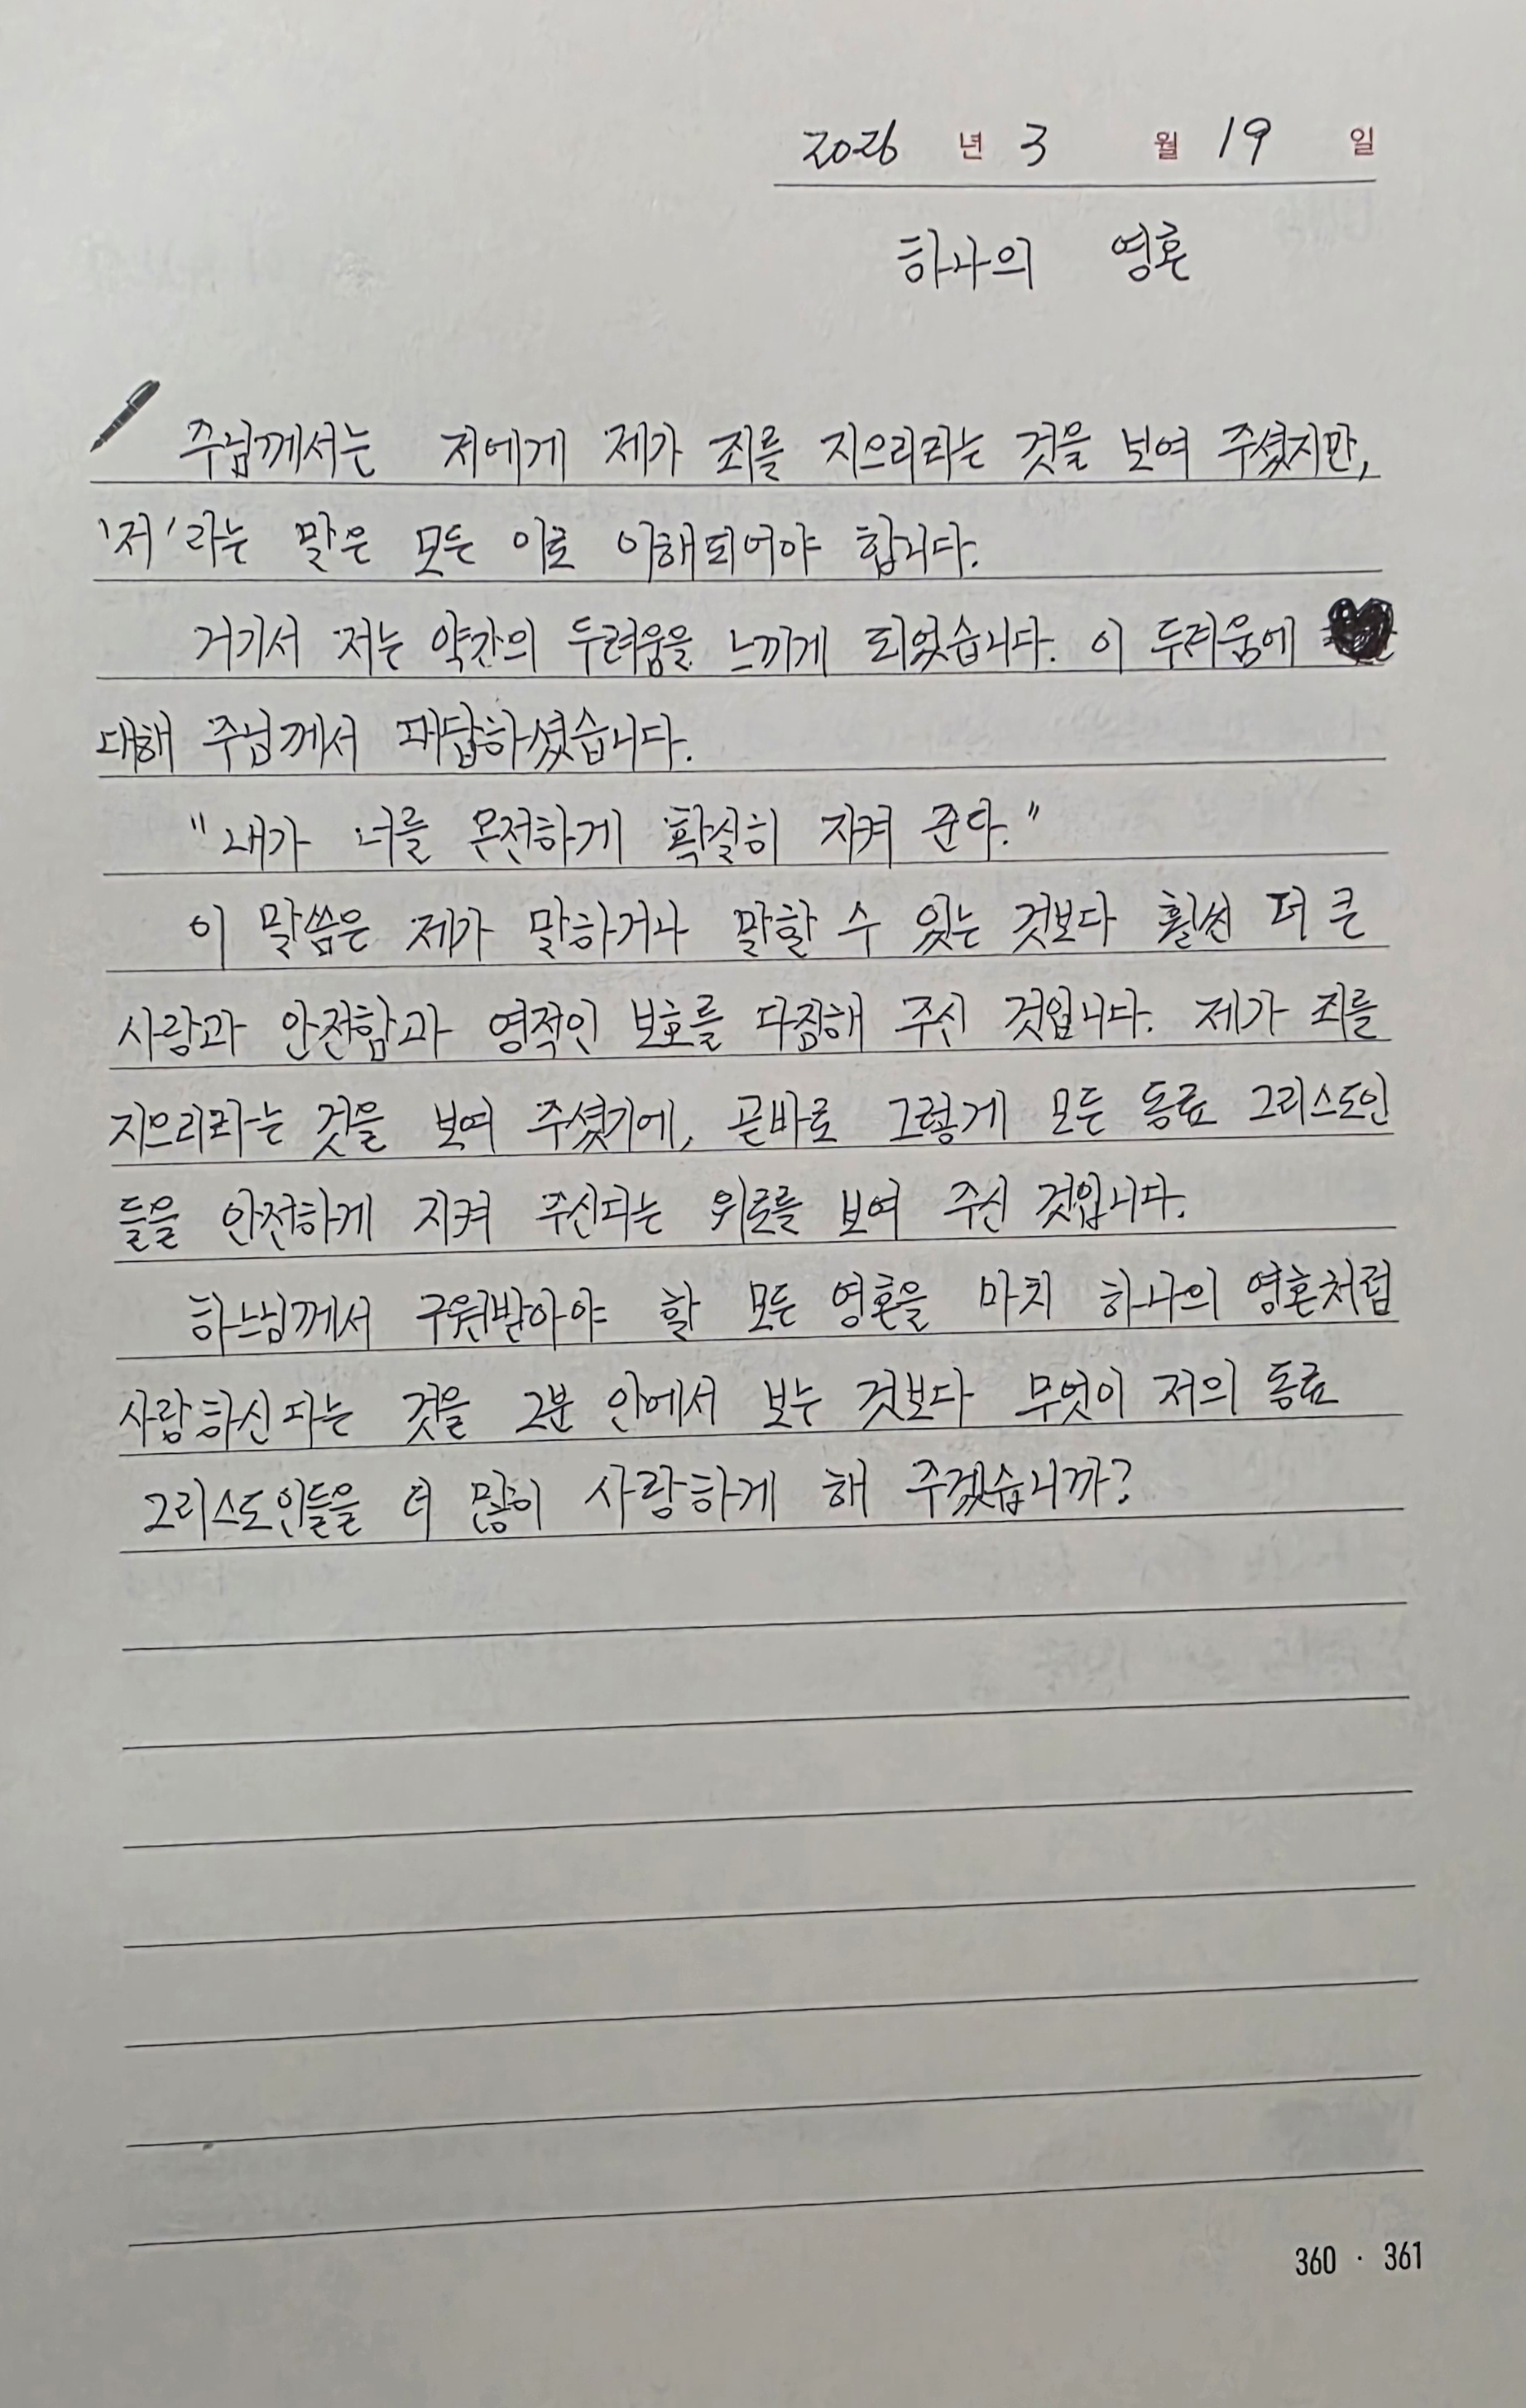 2026 년 3 월 19 일
하나의 영혼
주님께서는 저에게 제가 죄를 지으리라는 것을 보여 주셨지만,
'저'라는 말은 모든 이로 이해되어야 합니다.
거기서 저는 약간의 두려움을 느끼게 되었습니다. 이 두려움에
대해 주님께서 대답하셨습니다.
"내가 너를 온전하게 확실히 지켜 준다."
이 말씀은 제가 말하거나 말할 수 있는 것보다 훨씬 더 큰
사랑과 안전함과 영적인 보호를 다짐해 주신 것입니다. 제가 죄를
지으리라는 것을 보여 주셨기에, 곧바로 그렇게 모든 동료 그리스도인
들을 안전하게 지켜 주신다는 위로를 보여 주신 것입니다.
하느님께서 구원받아야 할 모든 영혼을 마치 하나의 영혼처럼
사랑하신다는 것을 그분 안에서 보는 것보다 무엇이 저의 동료
그리스도인들을 더 많이 사랑하게 해 주겠습니까?
360 · 361